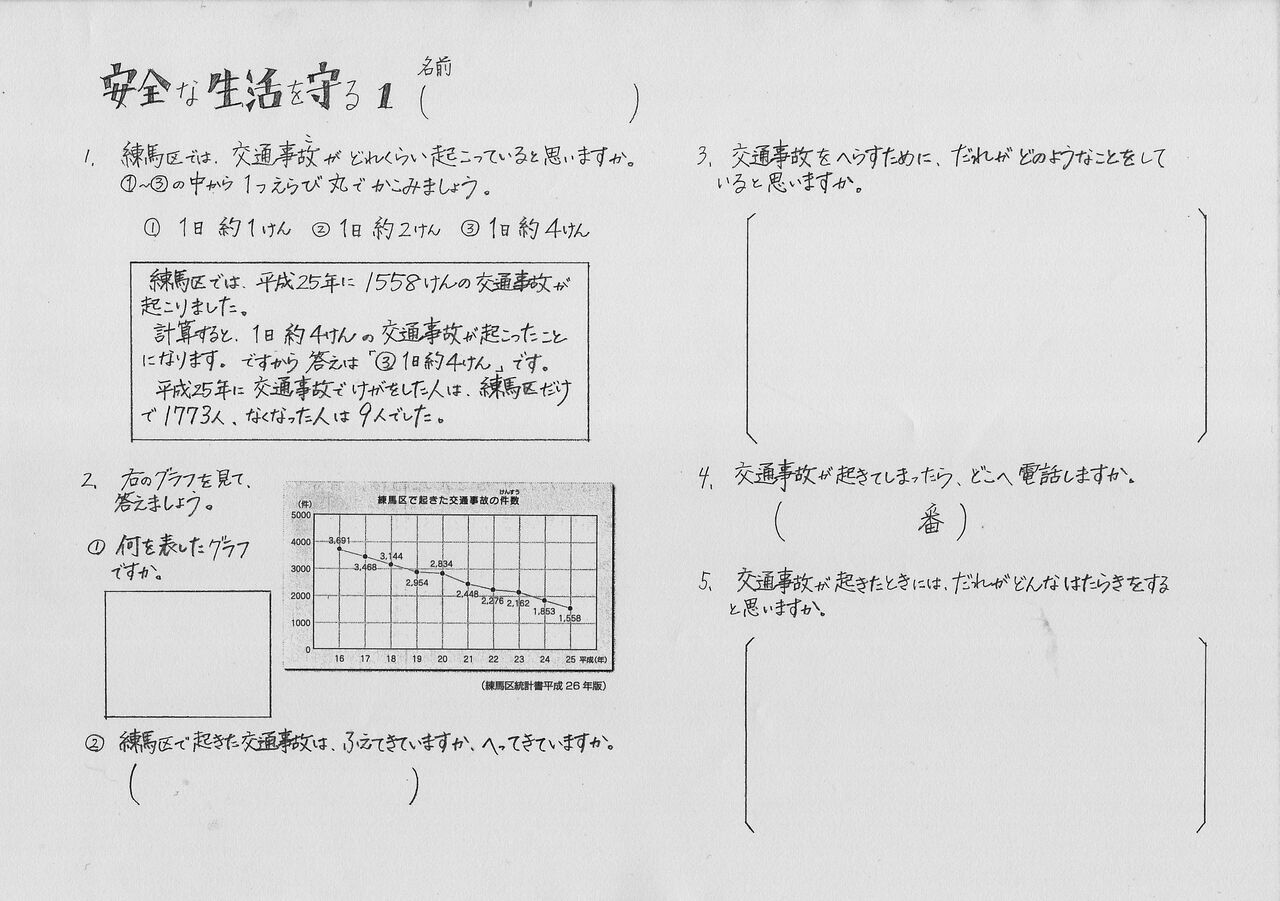 安全な生活を守る 1
名前
(　　　)
1. 練馬区では、交通事故がどれくらい起こっていると思いますか。
①~③の中から1つえらび丸でかこみましょう。
① 1日 約1けん ② 1日 約2けん ③ 1日 約4けん
練馬区では、平成25年に1558けんの交通事故が
起こりました。
計算すると、1日約4けんの交通事故が起こったこと
になります。ですから答えは「③1日約4けん」です。
平成25年に交通事故でけがをした人は、練馬区だけ
で1773人、なくなった人は9人でした。
2. 右のグラフを見て、
答えましょう。
① 何を表したグラフ
ですか。
けんすう
練馬区で起きた交通事故の件数
(件)
5000
4000
3000
2000
1000
0
3,691
3,468
3,144
2,954
2,834
2,448
2,276
2,162
1,853
1,558
16 17 18 19 20 21 22 23 24 25 平成(年)
(練馬区統計書平成26年版)
② 練馬区で起きた交通事故は、ふえてきていますか、へってきていますか。
(　　　)
3. 交通事故をへらすために、だれがどのようなことをして
いると思いますか。
4. 交通事故が起きてしまったら、どこへ電話しますか。
(　　　番)
5. 交通事故が起きたときには、だれがどんなはたらきをする
と思いますか。